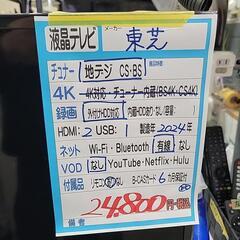 液晶テレビ メーカー 東芝
チューナー 地デジ CS・BS
4K 4K対応・チューナー内蔵(BS4K・CS4K)
録画 外付けHDD対応 内蔵HDDあり/なし(容量: )
HDMI: 2 USB: 1 製造年 2024年
ネット Wi-Fi・Bluetooth 有線 なし
VOD なし YouTube・Netflix・Hulu
付属品 リモコン あり なし B-CASカード 6カ月保証付
24,800円
備考